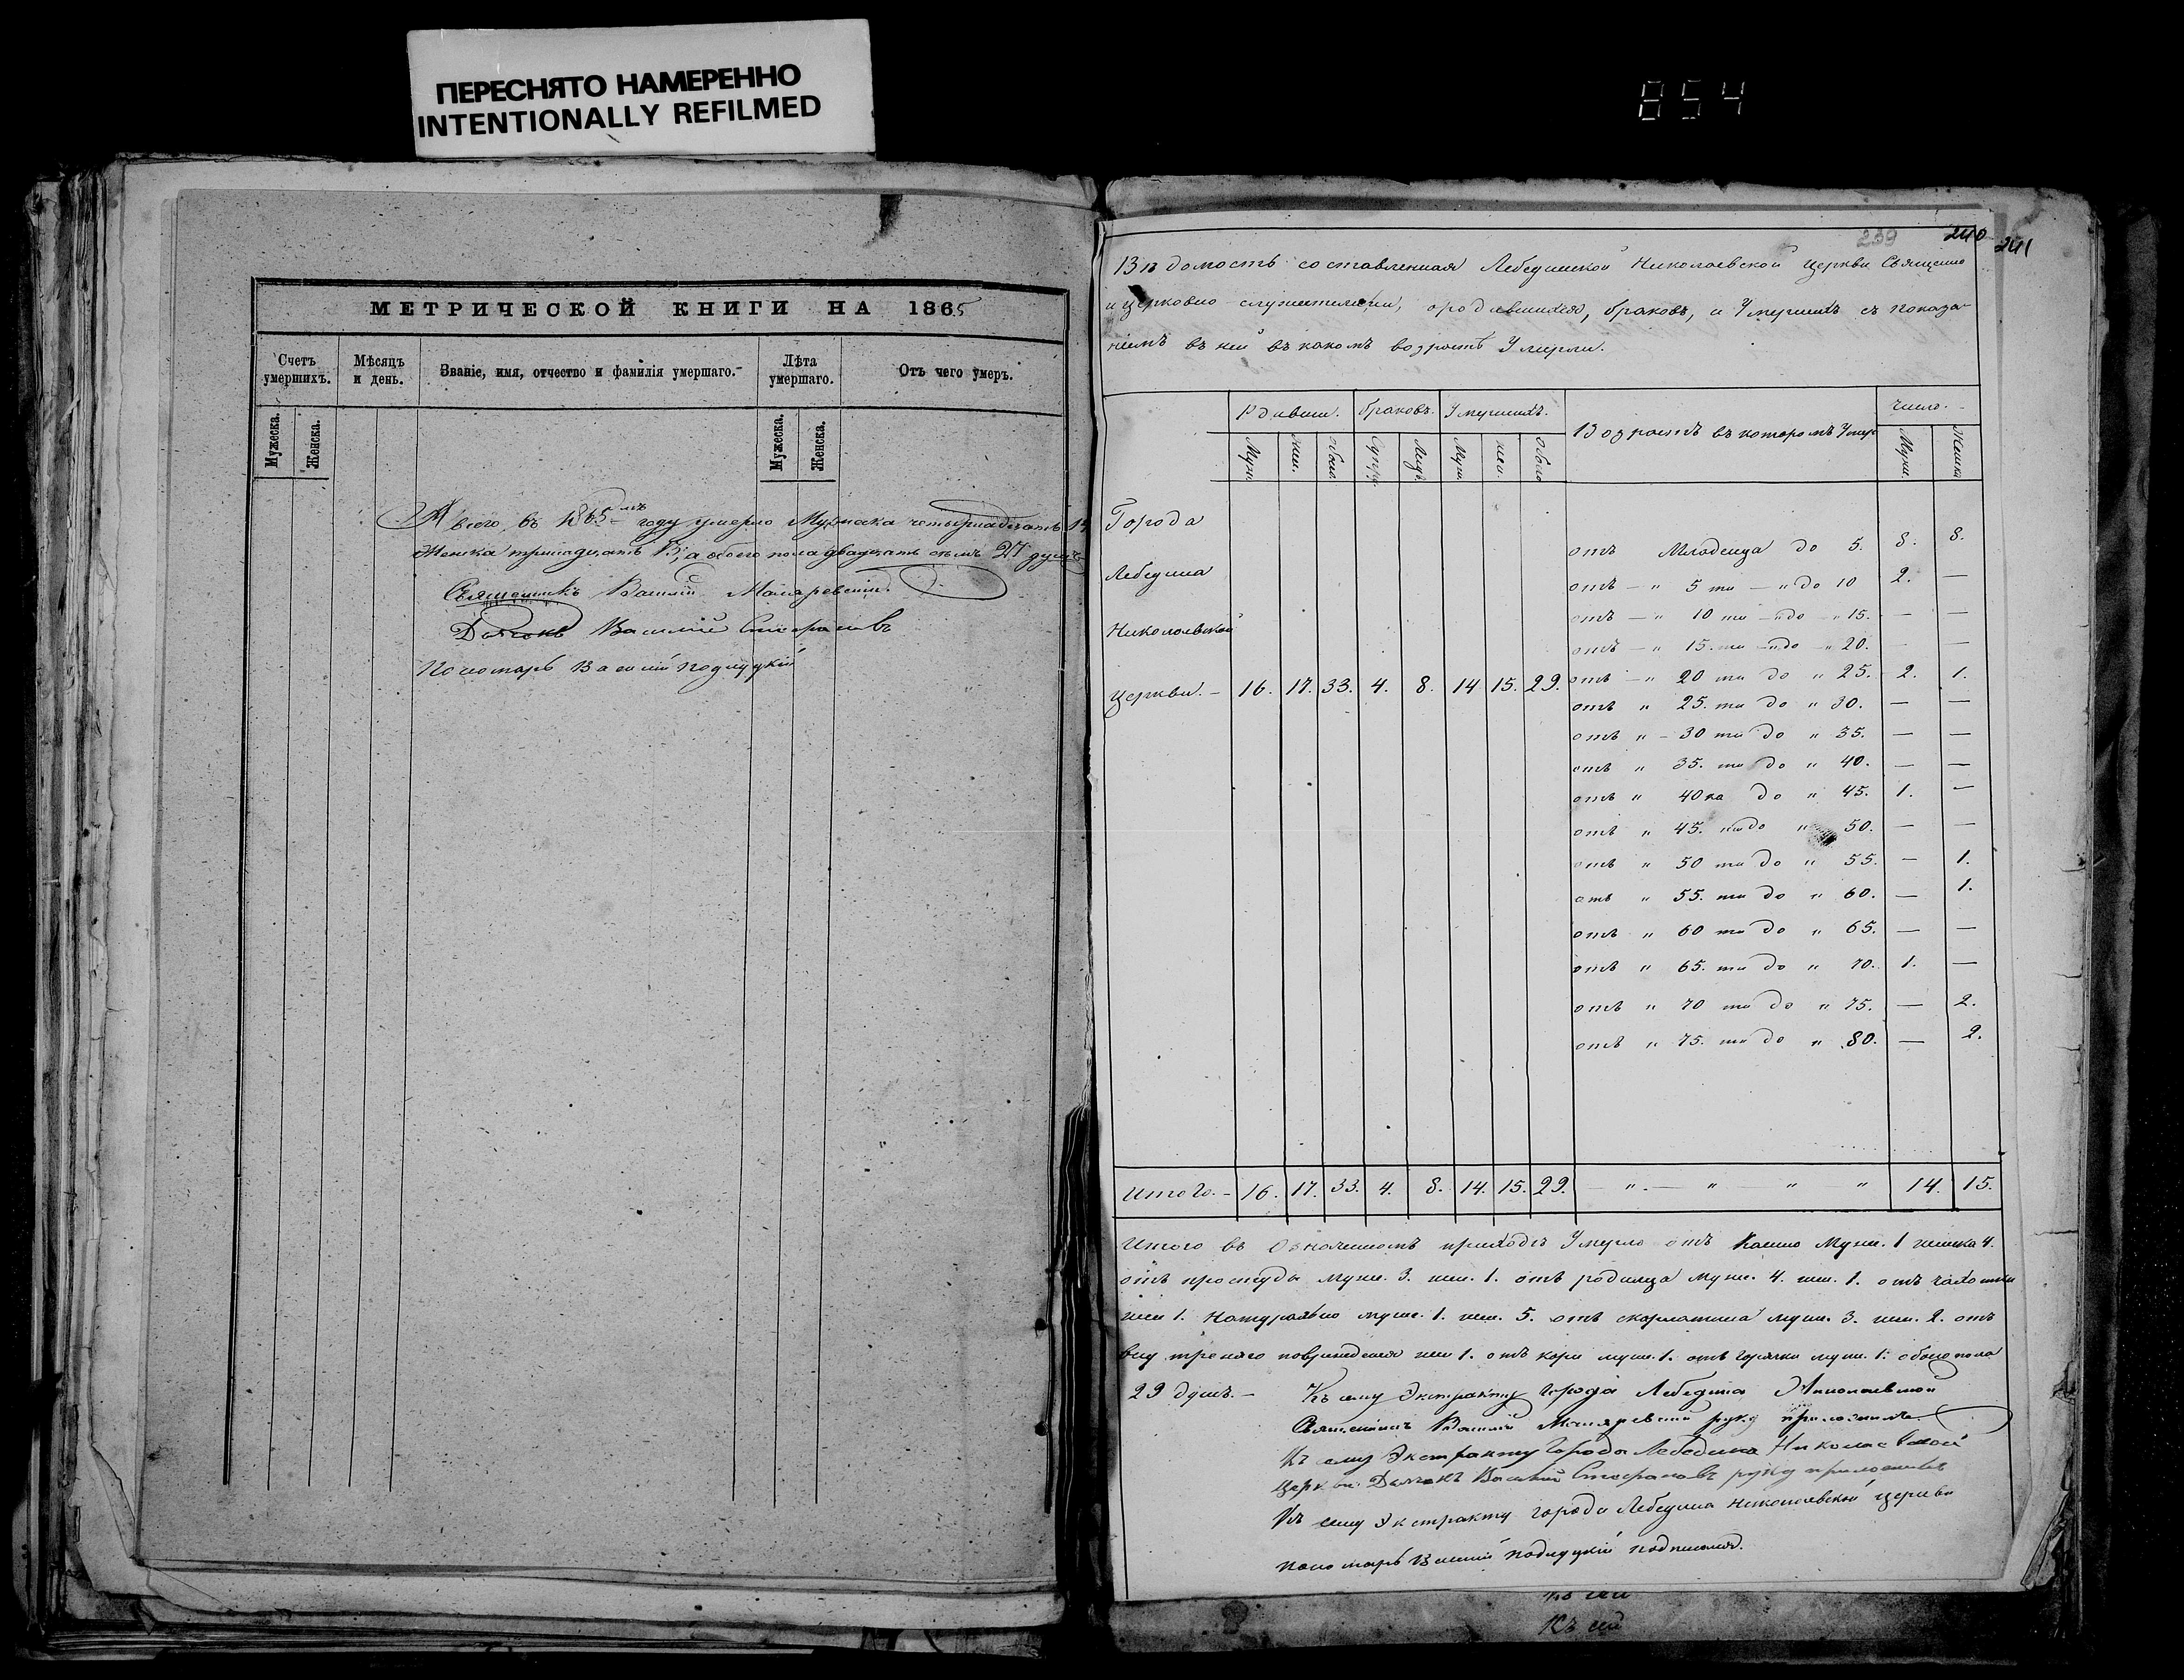 ПЕРЕСНЯТО НАМЕРЕННО
INTENTIONALLY REFILMED
854
МЕТРИЧЕСКОЙ КНИГИ НА 1865
Счетъ умершихъ.
Мѣсяцъ и день.
Званіе, имя, отчество и фамилія умершаго.
Лѣта умершаго.
Отъ чего умеръ.
Мужеска.
Женска.
Мужеска.
Женска.
А всего въ 1865мъ году умерло Мужеска четырнадцать 14
Женска тринадцать 13, а обоего пола двадцать семь 27 душъ
Священникъ Василій
Дьячокъ Василій Стефановъ
Пономарь Василій
239 240 241
Вѣдомость составленная Лебединской Николаевской Церкви Священно
и церковно-служителями, о родившихся, браковъ, и Умершихъ съ показа-
ніемъ въ ней въ какомъ возрастѣ Умерли.
Родивши. браковъ. Умершихъ. Возрастъ въ которомъ Умер. число.
Муж. жен. обоего Супру. Лицъ. Муж. жен. Обоего Муж. Женска
Города
Лебедина
Николаевской
Церкви. - 16. 17. 33. 4. 8. 14 15. 29.
отъ Младенца до 5. 8. 8.
отъ — " 5 ти — " до 10 2. —
отъ — " 10 ти — " до — " 15. — —
отъ — " 15. ти — " до — " 20. — —
отъ — " 20 ти до " 25. 2. 1.
отъ " 25. ти до " 30. — —
отъ " - 30 ти до " 35. — —
отъ " 35. ти до " 40. — —
отъ " 40 ка до " 45. 1. —
отъ " 45. ти до " 50. — —
отъ " 50 ти до " 55. — 1.
отъ " 55. ти до " 60. — 1.
отъ " 60 ти до " 65. — —
отъ " 65. ти до " 70. 1. —
отъ " 70 ти до " 75. — 2.
отъ " 75. ти до " 80. — 2.
Итого. - 16. 17. 33. 4. 8. 14. 15. 29. — " . — " " " 14. 15.
Итого въ Означенномъ приходѣ Умерло отъ Кашлю Муж. 1 женска 4.
отъ простуды муж. 3. жен. 1. отъ родимца муж. 4. жен. 1. отъ чахотки
жен 1. Натурально муж. 1. жен. 5. отъ скарлатина муж. 3. жен. 2. отъ
внутреняго поврежденія жен 1. отъ кори муж. 1. отъ горячки муж. 1. обоего пола
29 душъ. — Къ сему Экстракту Города Лебедина Николаевской
Священникъ Василій руку приложилъ.
Къ сему Экстракту Города Лебедина Николаевской
Церкви Дьячокъ Василій Стефановъ руку приложилъ
Къ сему Экстракту города Лебедина Николаевской церкви
пономарь подписался.
Къ сей